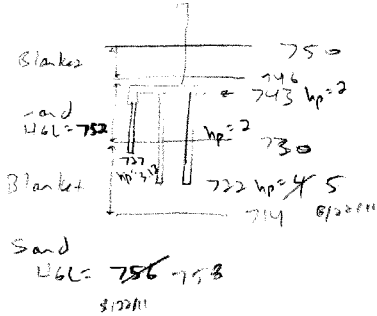 Blanket 750
746
743 hp=2
Sand
HGL=752
hp=2
730
727
hp=3.12
Blanket 722 hp=4 5
714 8/22/11
Sand
HGL= 756 758
8/22/11